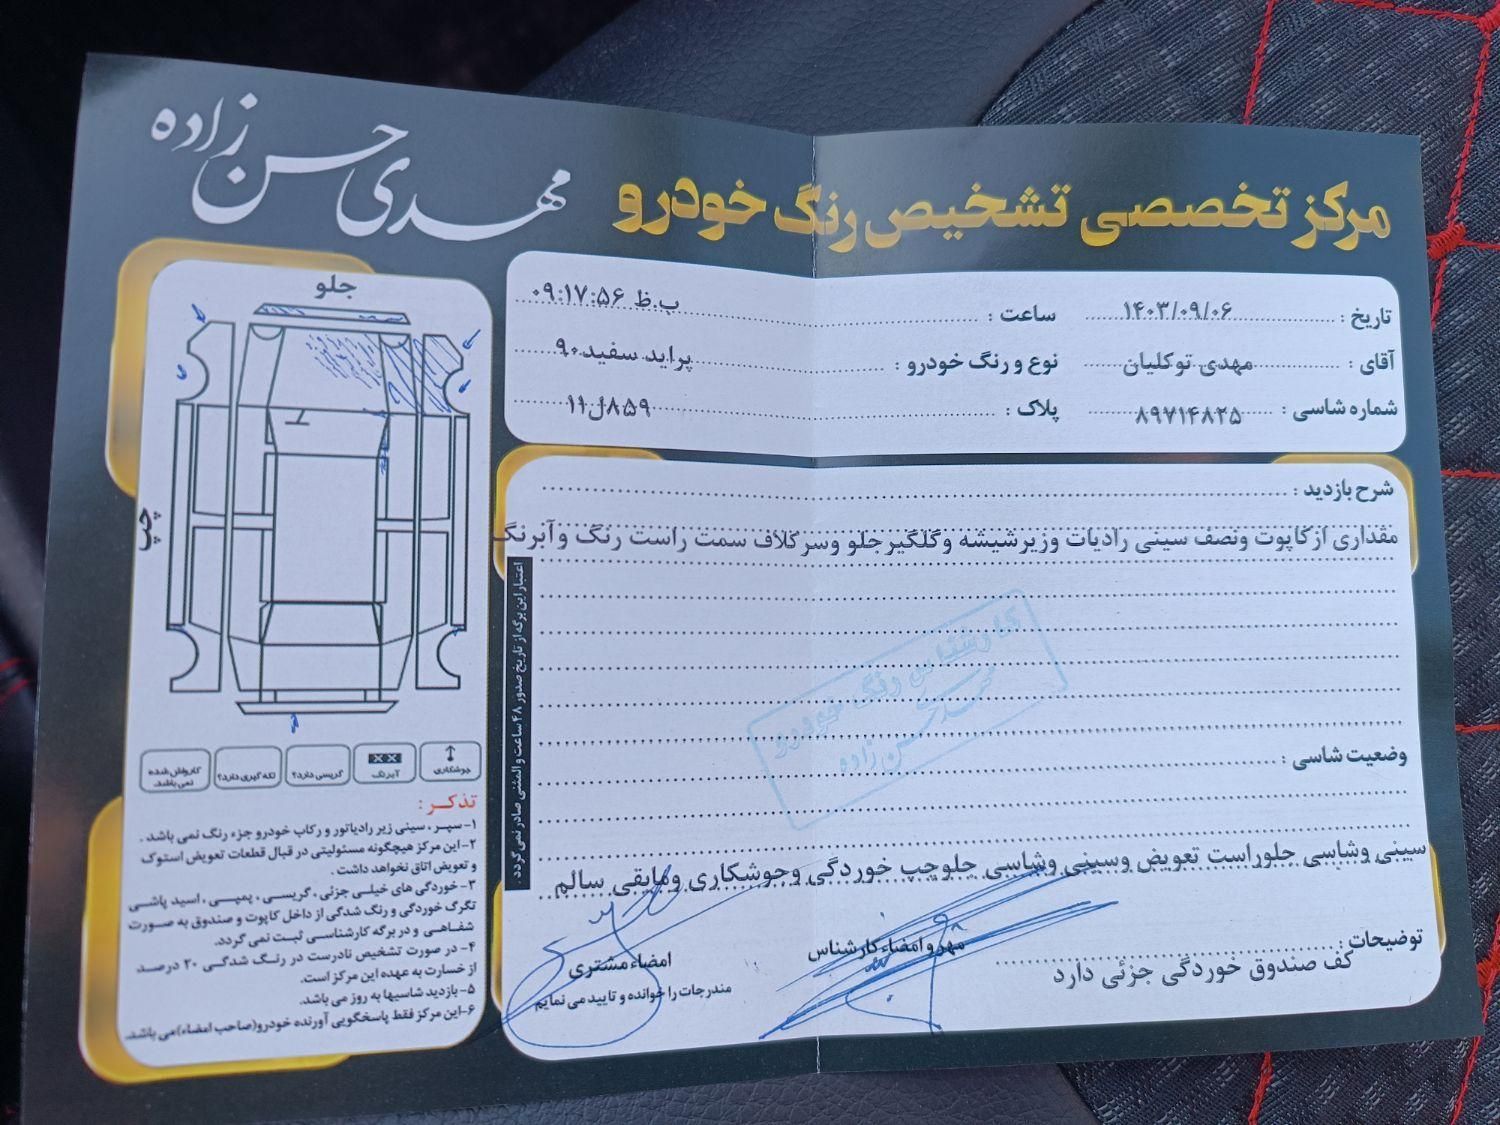 مرکز تخصصی تشخیص رنگ خودرو
مهدی حسن زاده
تاریخ : ۱۴۰۳/۰۹/۰۶
ساعت : ۰۹:۱۷:۵۶ ب.ظ
آقای : مهدی توکلیان
نوع و رنگ خودرو : پراید سفید ۹۰
شماره شاسی : ۸۹۷۱۴۸۲۵
پلاک : ۸۵۹ل۱۱
شرح بازدید :
مقداری از کاپوت ونصف سینی رادیات وزیرشیشه وگلگیرجلو وسرکلاف سمت راست رنگ وآبرنگ
کارشناس رنگ خودرو
مهدی حسن زاده
وضعیت شاسی :
سینی وشاسی جلوراست تعویض وسینی وشاسی جلوچپ خوردگی وجوشکاری ومابقی سالم
توضیحات :
کف صندوق خوردگی جزئی دارد
مهر و امضاء کارشناس
امضاء مشتری
مندرجات را خوانده و تایید می نمایم
اعتبار این برگه از تاریخ صدور ۴۸ ساعت و المثنی صادر نمی گردد.
جلو
چپ
جوشکاری
آبرنگ
گریسی دارد؟
لکه گیری دارد؟
کارواش شده نمی باشد.
تذکر :
۱- سپر ، سینی زیر رادیاتور و رکاب خودرو جزء رنگ نمی باشد .
۲- این مرکز هیچگونه مسئولیتی در قبال قطعات تعویض استوک
و تعویض اتاق نخواهد داشت .
۳- خوردگی های خیلی جزئی ، گریسی ، پمپی ، اسید پاشی
تگرگ خوردگی و رنگ شدگی از داخل کاپوت و صندوق به صورت
شفاهی و در برگه کارشناسی ثبت نمی گردد.
۴- در صورت تشخیص نادرست در رنگ شدگی ۲۰ درصد
از خسارت به عهده این مرکز است.
۵- بازدید شاسیها به روز می باشد.
۶- این مرکز فقط پاسخگویی آورنده خودرو(صاحب امضاء)می باشد.